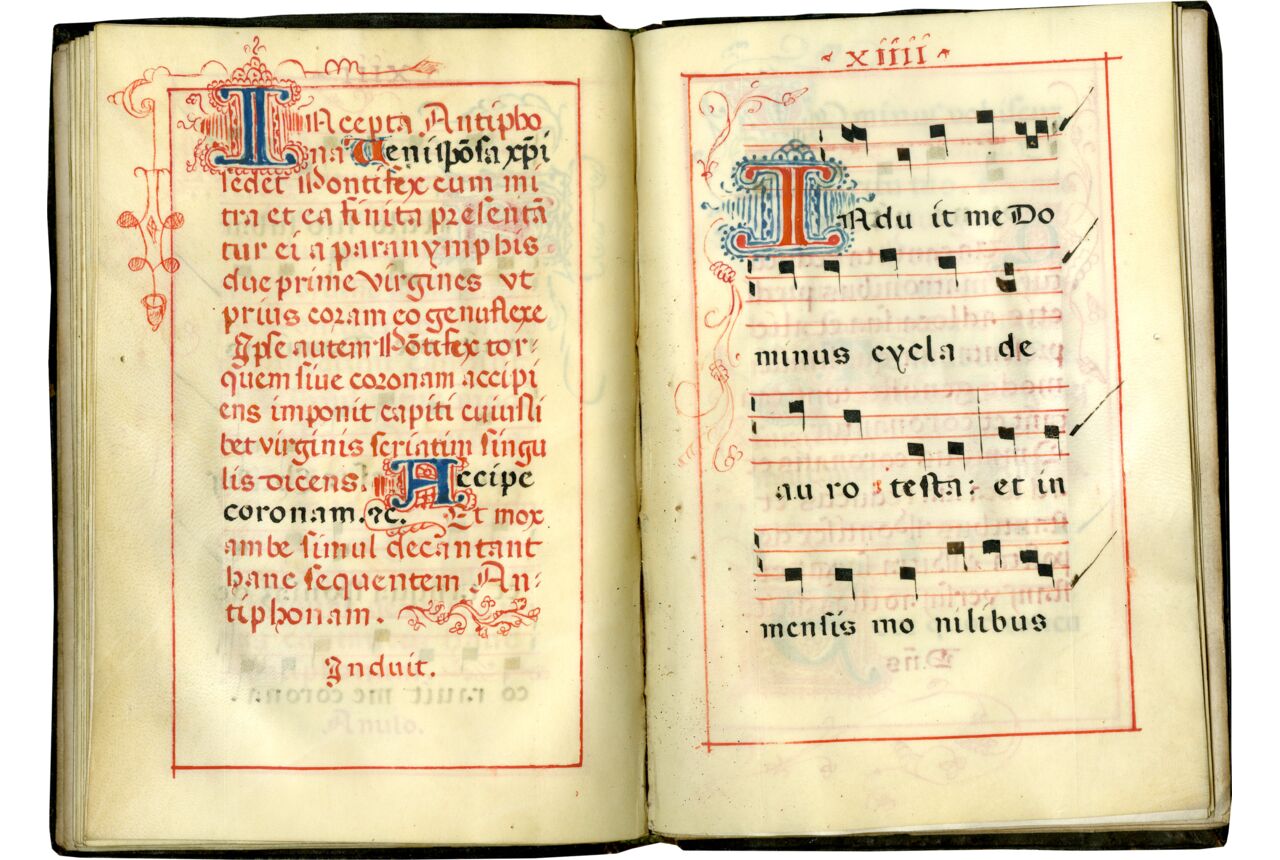 INcepta Antipho
na Veni spōsa xp̄i
sedet Pontifex cum mi
tra et ea finita presentā
tur ei a paranymphis
due prime virgines vt
prius coram eo genuflexe
Ipse autem Pōtifex tor-
quem siue coronam accipi
ens imponit capiti cuiusli
bet virginis seriatim singu
lis dicens. Accipe
coronam. ⁊c. Et mox
ambe simul decantant
hanc sequentem An-
tiphonam.
Induit.
xiiii
INdu it me Do
minus cycla de
au ro testa: et in
mensis mo nilibus